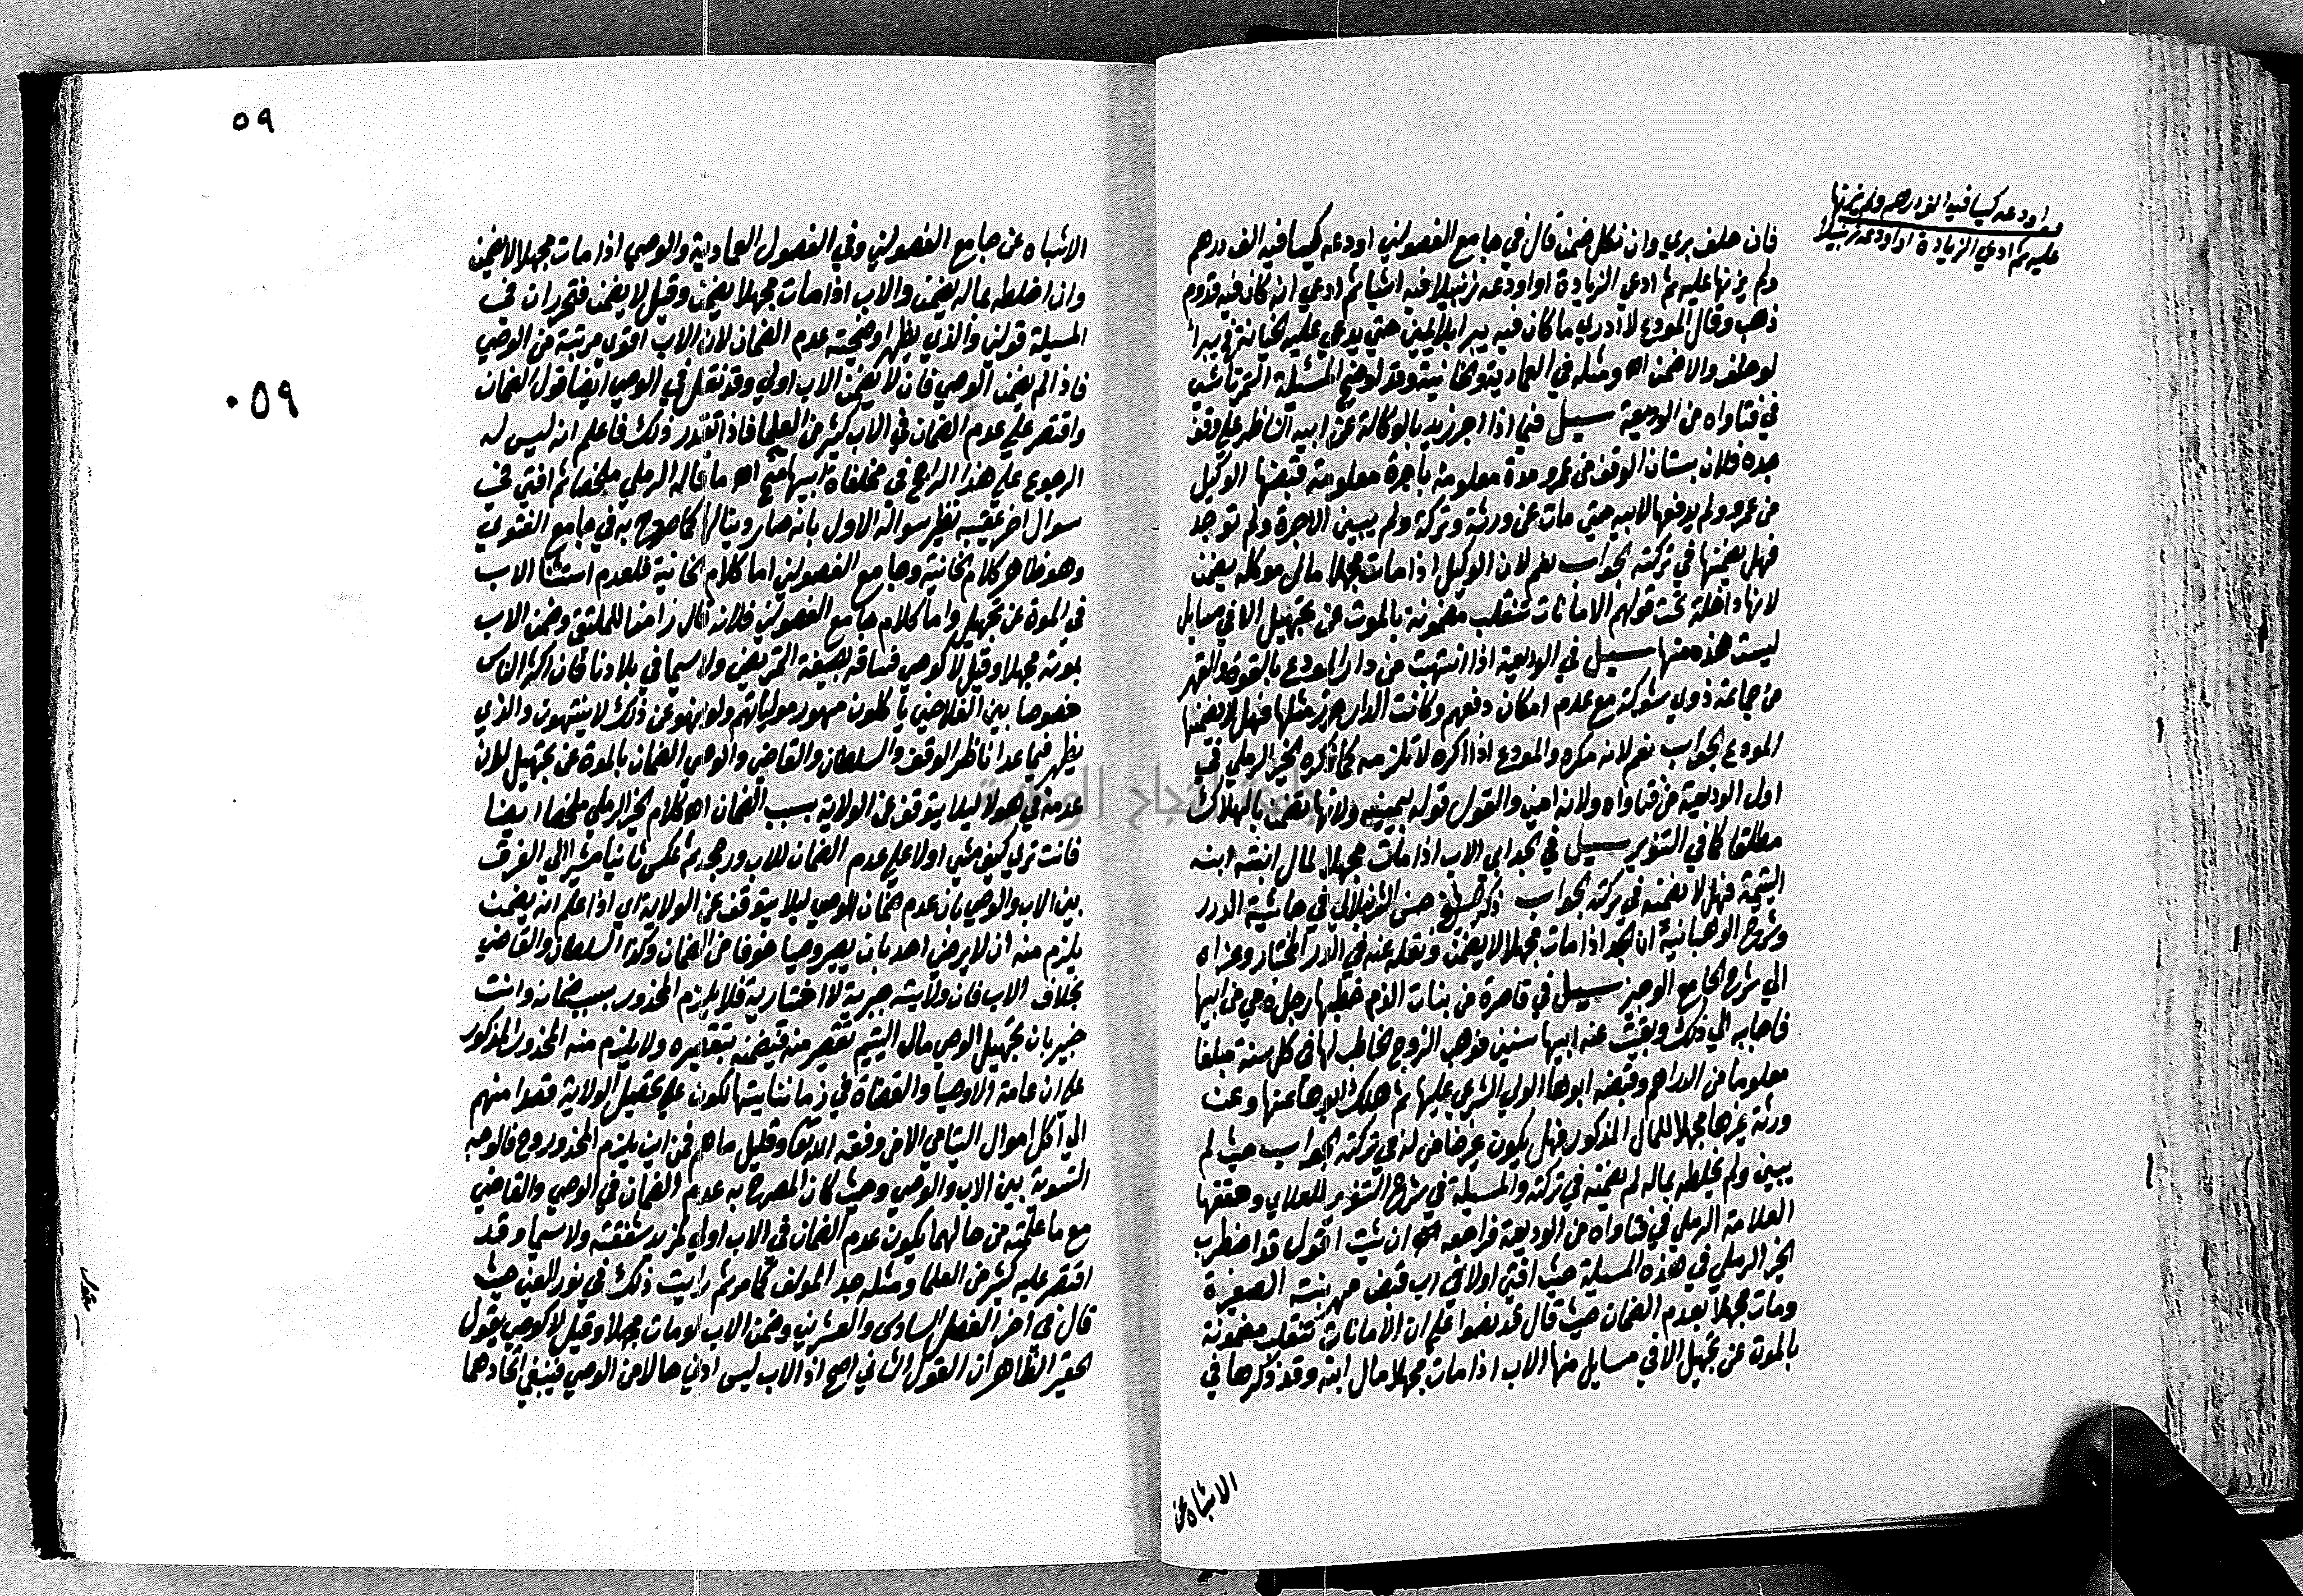 اودعه كيسا فيه الف درهم ولم يزنها
عليه ثم ادعي الزيادة او اودعه زنبيلا
فان حلف بري وان نكل ضمن قال في جامع الفصولين اودعه كيسا فيه الف درهم
ولم يزنها عليه ثم ادعي الزيادة او اودعه زنبيلا فيه اشيا ثم ادعي انه كان فيه قدوم
ذهب وقال المودع لا ادري ما كان فيه يبرا بلا يمين حتي يدعي عليه خيانة فيبرا
لو حلف والا ضمن اه ومثله في العمادية والخانية وقد اوضح المسئلة التمرتاشي
في فتاواه من الوديعة سيل فيما اذا اجر زيد بالوكالة عن ابيه الناظر علي وقف
جده فلان بستان الوقف من عمرو مدة معلومة باجرة معلومة قبضها الوكيل
من عمرو ولم يدفعها لابيه حتي مات عن ورثة وتركة ولم يبين الاجرة ولم توجد
فهل يضمنها في تركته الجواب نعم لان الوكيل اذا مات مجهلا مال موكله يضمن
لانها داخلة تحت قولهم الامانات تنقلب مضمونة بالموت عن تجهيل الا في مسايل
ليست هذه منها سيل في الوديعة اذا انتهبت من دار المودع بالقوة والقهر
من جماعة ذوي شوكة مع عدم امكان دفعهم وكانت الدار حرز مثلها فهل لا يضمنها
المودع الجواب نعم لانه مكره والمودع اذا اكره لا تلزمه كما ذكره الخير الرملي في
اول الوديعة من فتاواه ولانه امين والقول قوله بيمينه ولانها تضمن بالهلاك
مطلقا كما في التنوير سيل في الجد ابي الاب اذا مات مجهلا لمال ابنة ابنه
اليتيمة فهل لا يضمنه في تركته الجواب ذكر الشيخ حسن الشرنبلالي في حاشية الدرر
وشرح الوهبانية ان الجد اذا مات مجهلا لا يضمن ونقله عنه في الدر المختار وعزاه
الي شرح الجامع الوجيز سيل في قاصرة من بنات الذم خطبها رجل ذمي من ابيها
فاجابه الي ذلك وبقيت عند ابيها سنين فوهب الزوج الخاطب لها في كل سنة مبلغا
معلوما من الدراهم وقبضه ابوها الولي الشرعي عليها ثم هلك الاب عنها وعن
ورثة غيرها مجهلا للمال المذكور فهل يكون غير ضامن له في تركته الجواب حيث لم
يبين ولم يخلطه بماله لم يضمنه في تركته والمسيلة في شرح التنوير للعلاي وحققها
العلامة الرملي في فتاواه من الوديعة فراجعه ان شيت اقول قد اضطرب
الخير الرملي في هذه المسيلة حيث افتي اولا في اب قبض مهر بنته الصغيرة
ومات مجهلا بعدم الضمان حيث قال قد نصوا علي ان الامانات تنقلب مضمونة
بالموت عن تجهيل الا في مسايل منها الاب اذا مات مجهلا مال ابنه وقد ذكرها في
الاشباه عن
٥٩
٠٥٩
الاشباه عن جامع الفصولين وفي الفصول العمادية والوصي اذا مات مجهلا لا يضمن
وان اخلطه بماله يضمن والاب اذا مات مجهلا يضمن وقيل لا يضمن فتحرر ان في
المسيلة قولين والذي يظهر اوضحيته عدم الضمان لان الاب اقوي مرتبة من الوصي
فاذا لم يضمن الوصي فان لا يضمن الاب اولي وقد نقل في الوصي ايضا قول الضمان
واقتصر علي عدم الضمان في الاب كثير من العلما فاذا تقرر ذلك فاعلم انه ليس له
الرجوع علي هذا الراجح في مخلفات ابيها اه ما قاله الرملي ملخصا ثم افتي في
سوال اخر عقبه نظير سواله الاول بانه صار دينا لها كما صرح به في جامع الفتوي
وهو ظاهر كلام الخانية وجامع الفصولين اما كلام الخانية فلعدم استثنا الاب
في الموت عن تجهيل واما كلام جامع الفصولين فلانه قال رامزا للملتقي وضمن الاب
بموته مجهلا وقيل لا كوصي فساقه بصيغة التمريض ولا سيما في بلادنا فان اكثر الناس
خصوصا بين الفلاحين ياكلون مهور مولياتهم ولو نهوا عن ذلك لا ينتهون والذي
يظهر فيما عدا ناظر الوقف والسلطان والقاضي والوصي الضمان بالموت عن تجهيل لان
عدمه في هولا ليلا يتوقف عن الولاية بسبب الضمان اه كلام الخير الرملي ملخصا ايضا
فانت تري كيف مشي اولا علي عدم الضمان للاب ورجحه ثم عكس ثانيا مشيرا الي الفرق
بين الاب والوصي بان عدم ضمان الوصي ليلا يتوقف عن الولاية اي اذا علم انه يضمن
يلزم منه ان لا يرضي احد بان يصير وصيا خوفا من الضمان وكذا السلطان والقاضي
بخلاف الاب فان ولايته جبرية لا اختيارية فلا يلزم المحذور بسبب ضمانه وانت
خبير بان تجهيل الوصي مال اليتيم تقصير منه فيضمنه بتقصيره ولا يلزم منه المحذور المذكور
علي ان عامة الاوصيا والقضاة في زماننا يتهالكون علي تحصيل الولاية قصدا منهم
الي اكل اموال اليتامي الا من وفقه الله تعالي وقليل ما هم فمن اين يلزم المحذور وح فالوجه
التسوية بين الاب والوصي وحيث كان المصرح به عدم الضمان في الوصي والقاضي
مع ما علمته من حالهما يكون عدم الضمان في الاب اولي لمزيد شفقته ولا سيما وقد
اقتصر عليه كثير من العلما ومثله جد المولف كما مر ثم رايت ذلك في نور العين حيث
قال في اخر الفصل السادس والعشرين وضمن الاب لو مات مجهلا وقيل لا كوصي يقول
الحقير الظاهر ان القول الثاني اصح اذ الاب ليس ادني حالا من الوصي فينبغي اتحادهما